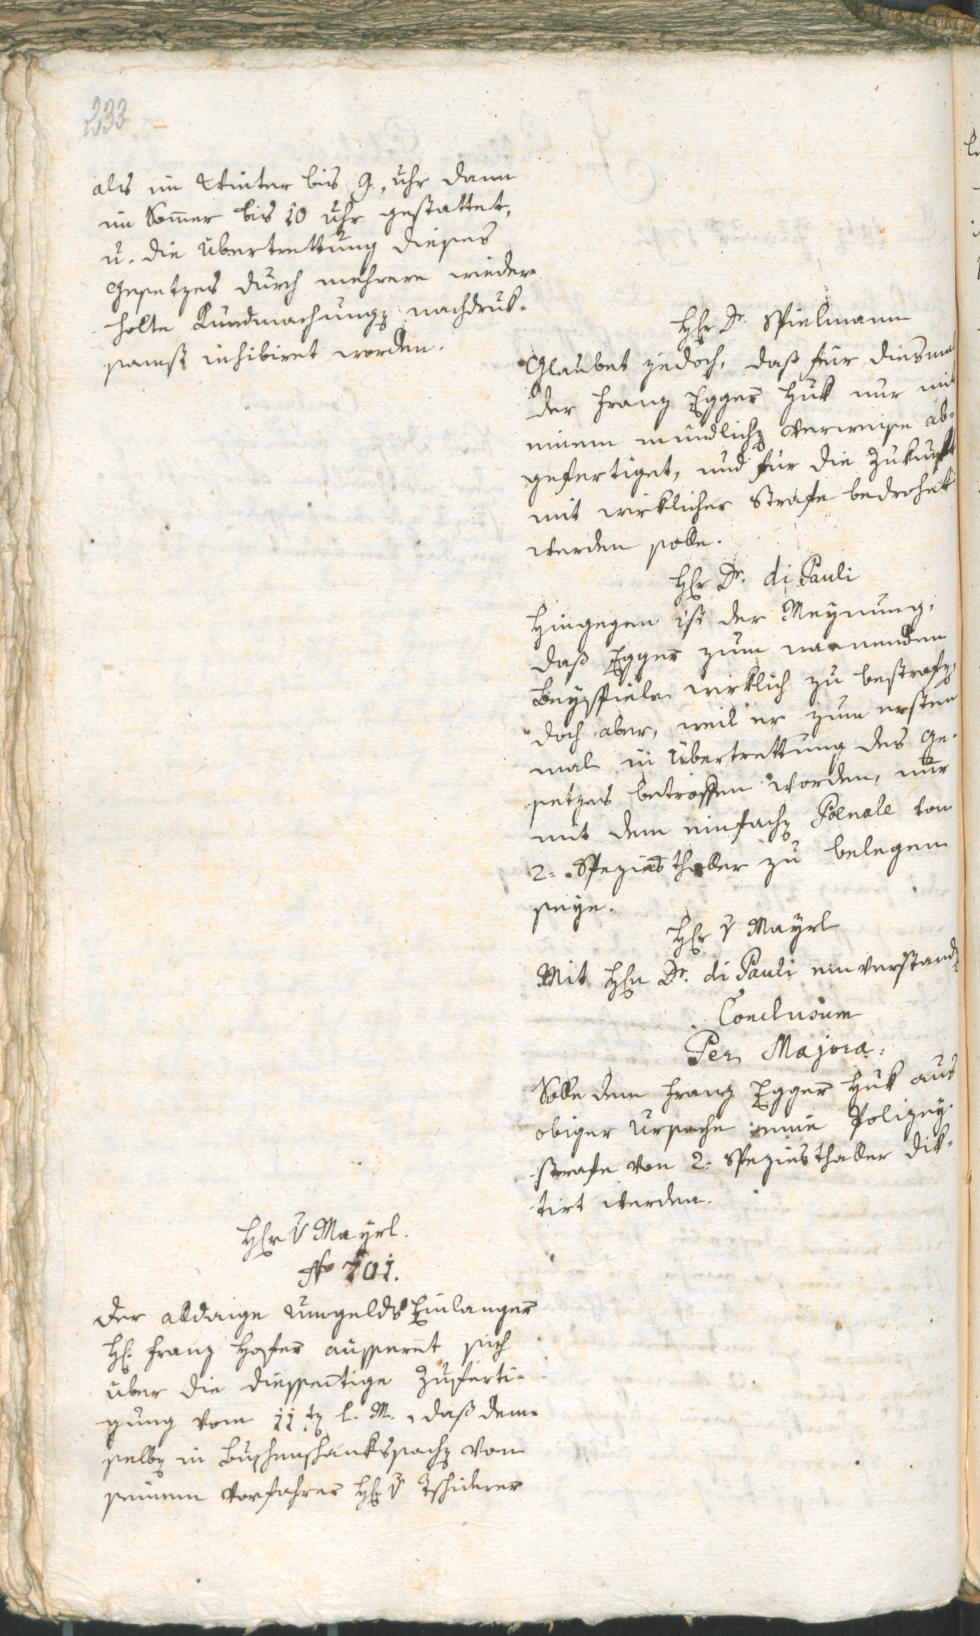 233
als im Winter bis 9. uhr dann
im Som̅er bis 10 uhr gestattet,
u. die Übertrettung dieses
Gesetzes durch mehrere wieder-
holte Kundmachung nachdruk-
samst inhibiret worden.
Hr Dr. Spielmann
Glaubet jedoch, daß für diesmal
der Franz Egger Huk nur mit
einem mündlich Verweise ab-
gefertiget, und für die Zukunft
mit wirklicher Strafe bedrohet
werden solle.
Hr Dr. di Pauli
Hingegen ist der Meynung,
daß Egger zum warnenden
Beyspiele wirklich zu bestrafen,
doch aber, weil er zum ersten
mal in Übertrettung des Ge-
setzes betroffen worden, nur
mit dem einfach Poenale von
2. Speziesthaller zu belegen
seye.
Hr v Mayrl
Mit Hrn Dr. di Pauli einverstand
Conclusum
Per Majora.
Solle dem Franz Egger Huk aus
obiger Ursache eine Polizey-
strafe von 2. Speziesthaller dik-
tirt werden.
Hr v Mayrl.
No 701.
Der alldaige Umgelds Einlanger
H. Franz Hofer äusseret sich
über die diesseitige Zuferti-
gung vom 11t l. M., daß dem-
selb in Buschenschankssach von
seinem Vorfahrer Hr v Tschiderer